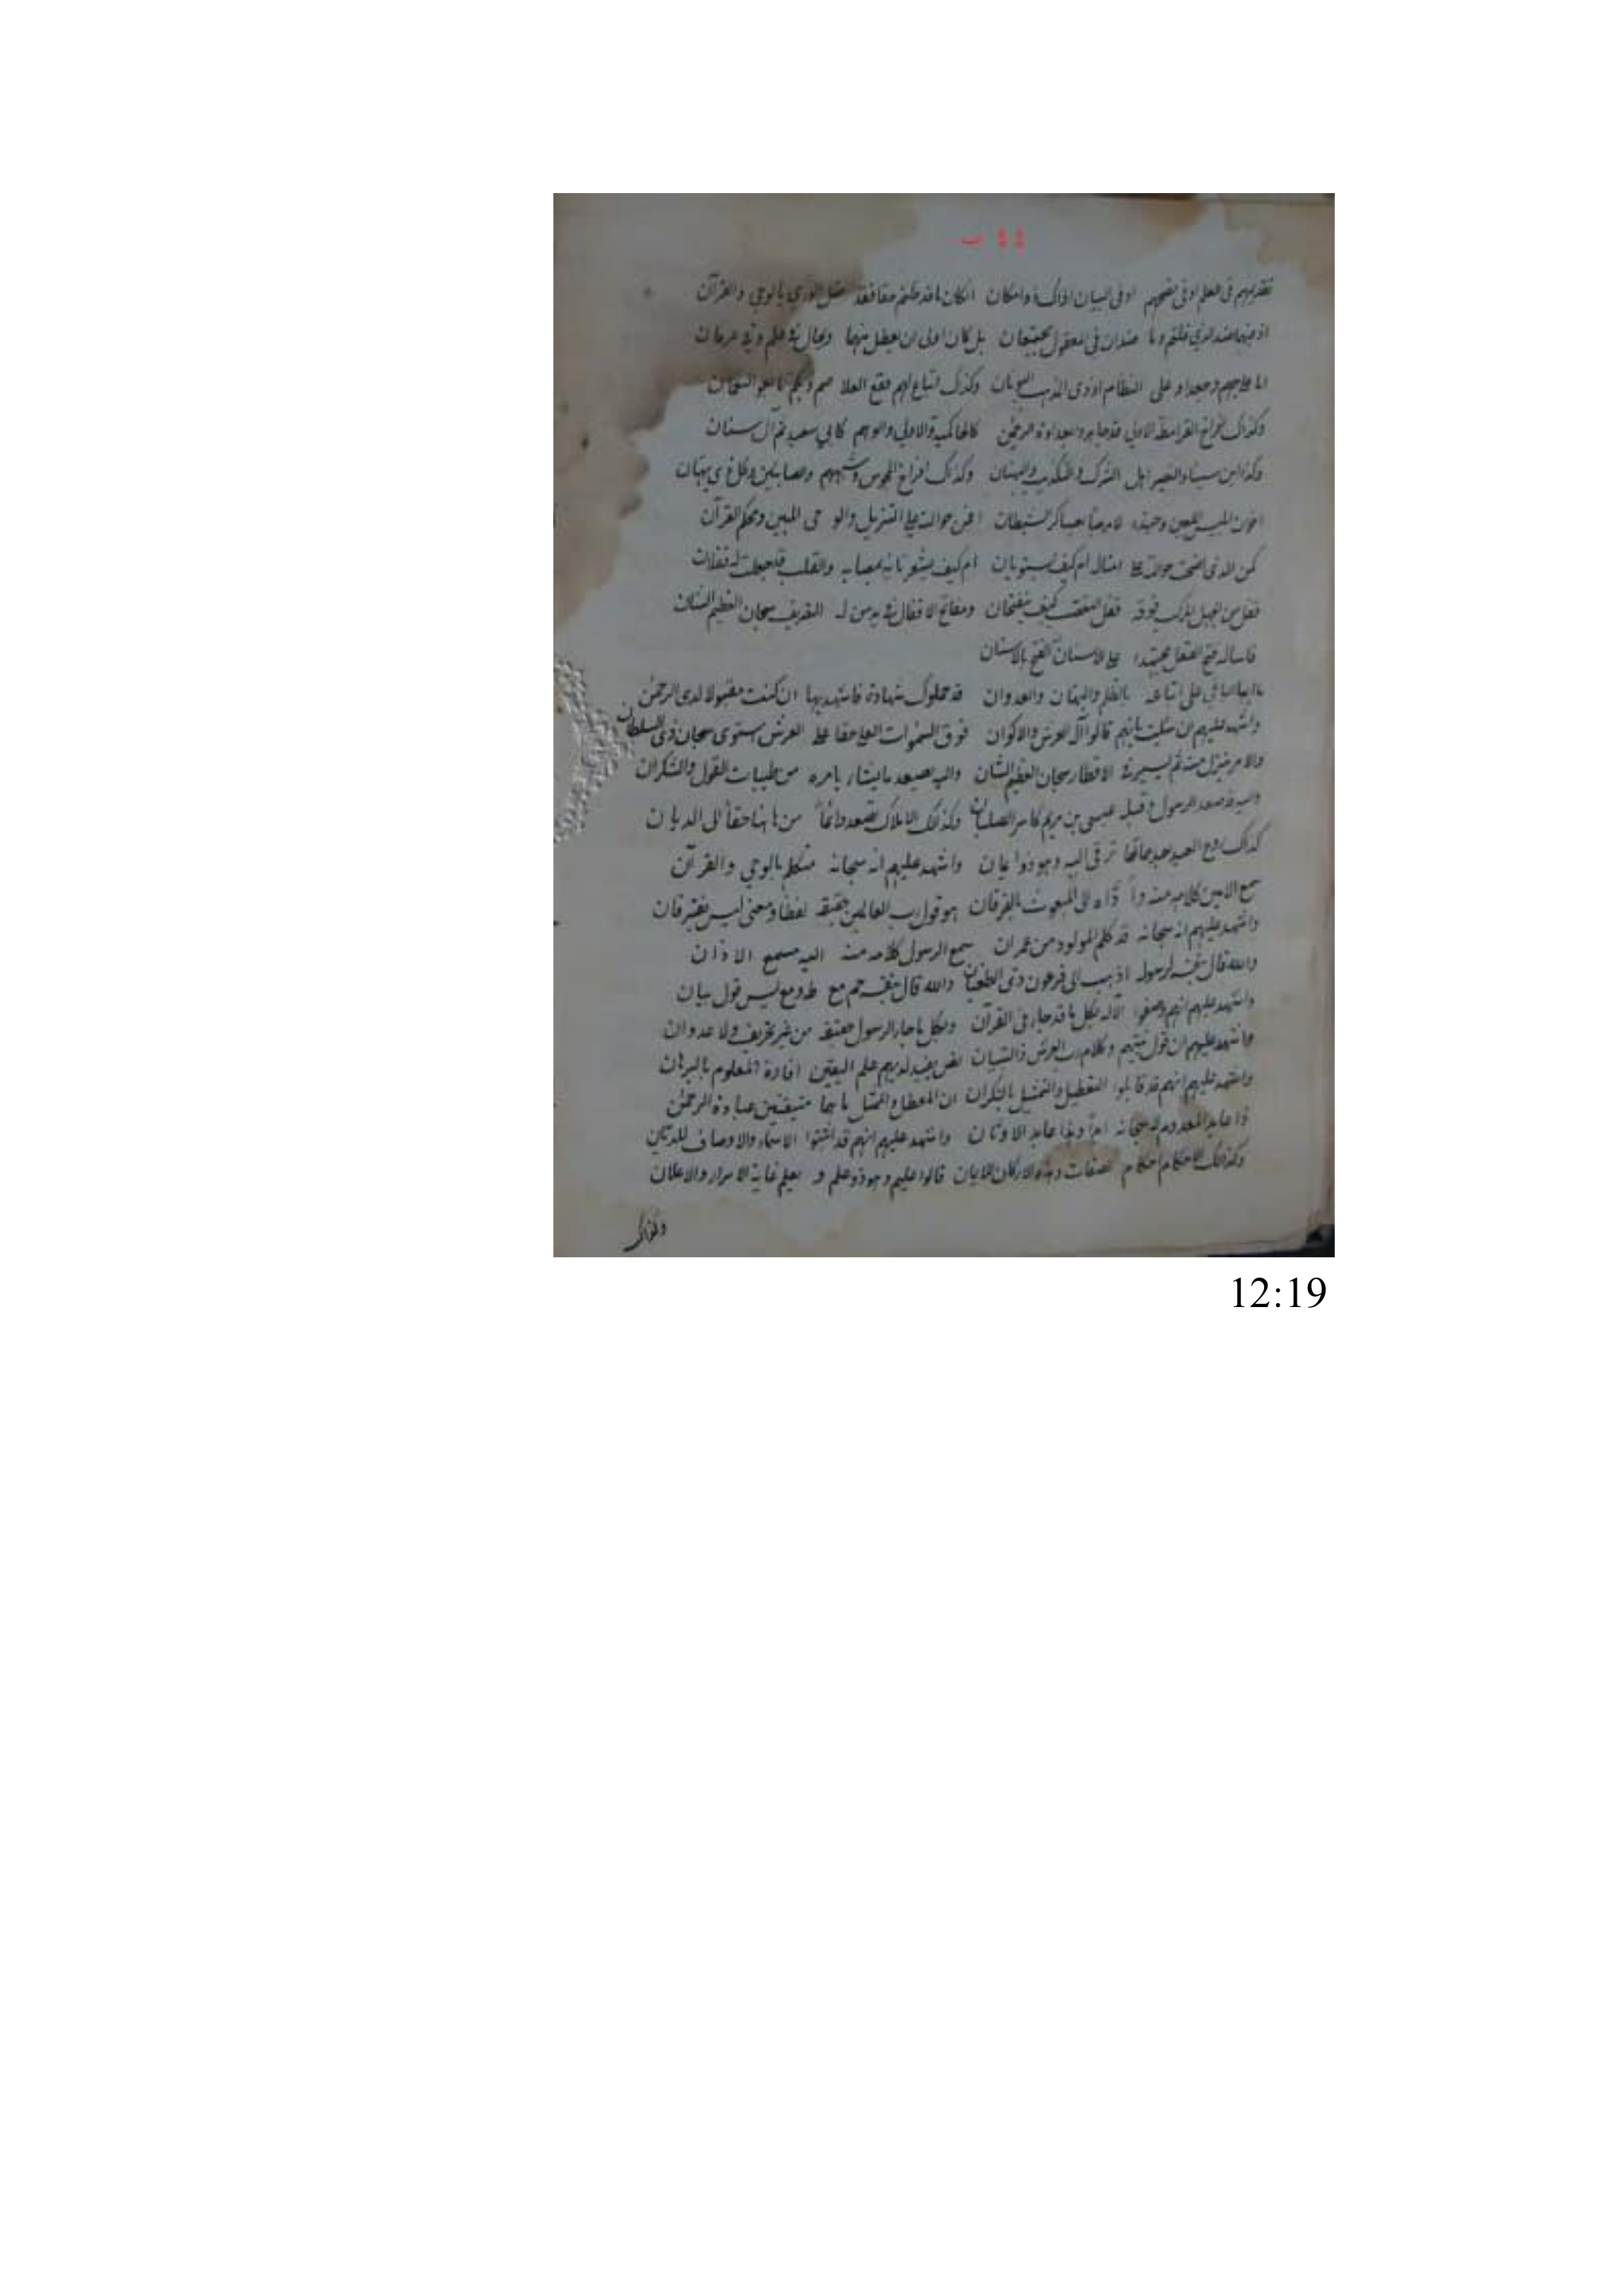 ٤٤ ب
تقديرهم في العلم او في نصحهم او في البيان اذاك ذو امكان ان كان ما قد قلتم حقا فقد ضل الورى بالوحي والقرآن
اذ فيهما ضد الذي قلتم وما ضدان في المعقول يجتمعان بل كان اولى ان يعطل منهما ويحال في علم وفي عرفان
اما على جهم وجعد او على النظام او ذي المذهب اليونان وكذلك اتباع لهم فقع الفلا صم وبكم
وكذاك افراخ القرامطة الاولى قد جاهروا بعداوة الرحمن كالحاكمية والاولى والوهم كابي سعيد ثم آل سنان
وكذا ابن سينا والنصير اهل الشرك والتكذيب والبهتان وكذلك افراخ المجوس وشبههم والصابئين وكل ذي بهتان
اخوان ابليس اللعين وجنده لا مرحبا بعساكر الشيطان افمن حوالته على التنزيل والو حي المبين ومحكم القرآن
كمن الذي اضحت حوالته على امثاله ام كيف يستويان ام كيف يشعر تائه بمصابه والقلب قد جعلت له قفلان
قفل من الجهل المركب فوقه قفل التعصب كيف ينفتحان ومفاتح الاقفال في يد من له التصريف سبحان العظيم الشان
فاساله فتح القفل مجتهدا على الاسنان الفتح بالاسنان
يا ايها الباغي على اتباعه بالظلم والبهتان والعدوان قد حملوك شهادة فاشهد بها ان كنت مقبولا لدى الرحمن
واشهد عليهم ان سئلت بانهم قالوا اله العرش والاكوان فوق السموات العلى حقا على العرش استوى سبحان ذي السلطان
والامر ينزل منه ثم يسير في الاقطار سبحان العظيم الشان واليه يصعد ما يشاء بامره من طيبات القول والشكران
واليه قد صعد الرسول وقبله عيسى بن مريم كاسر الصلبان وكذلك الاملاك تصعد دائما من هاهنا حقا الى الديان
كذاك روح العبد بعد مماتها ترقى اليه وهو ذو ايمان واشهد عليهم انه سبحانه متكلم بالوحي والقرآن
سمع الامين كلامه منه واداه الى المبعوث بالفرقان هو قول رب العالمين حقيقة لفظا ومعنى ليس يفترقان
واشهد عليهم انه سبحانه قد كلم المولود من عمران سمع الرسول كلامه منه اليه مسمع الاذان
والله قال بنفسه لرسوله اذهب الى فرعون ذي الطغيان والله قال بنفسه حم مع طه ومع يس قول بيان
واشهد عليهم انهم وصفوا الاله بكل ما قد جاء في القرآن وبكل ما جاء الرسول حقيقة من غير تحريف ولا عدوان
واشهد عليهم ان قول نبيهم وكلام رب العرش ذا التبيان نص يفيد لديهم علم اليقين افادة المعلوم بالبرهان
واشهد عليهم انهم قد قابلوا التعطيل والتمثيل بالنكران ان المعطل والممثل ما هما متيقنين عبادة الرحمن
ذا عابد المعدوم لا سبحانه ابدا وهذا عابد الاوثان واشهد عليهم انهم قد اثبتوا الاسماء والاوصاف للديان
وكذلك الاحكام احكام الصفات وهذه الاركان للايمان قالوا عليم وهو ذو علم و يعلم غاية الاسرار والاعلان
وكذاك
12:19